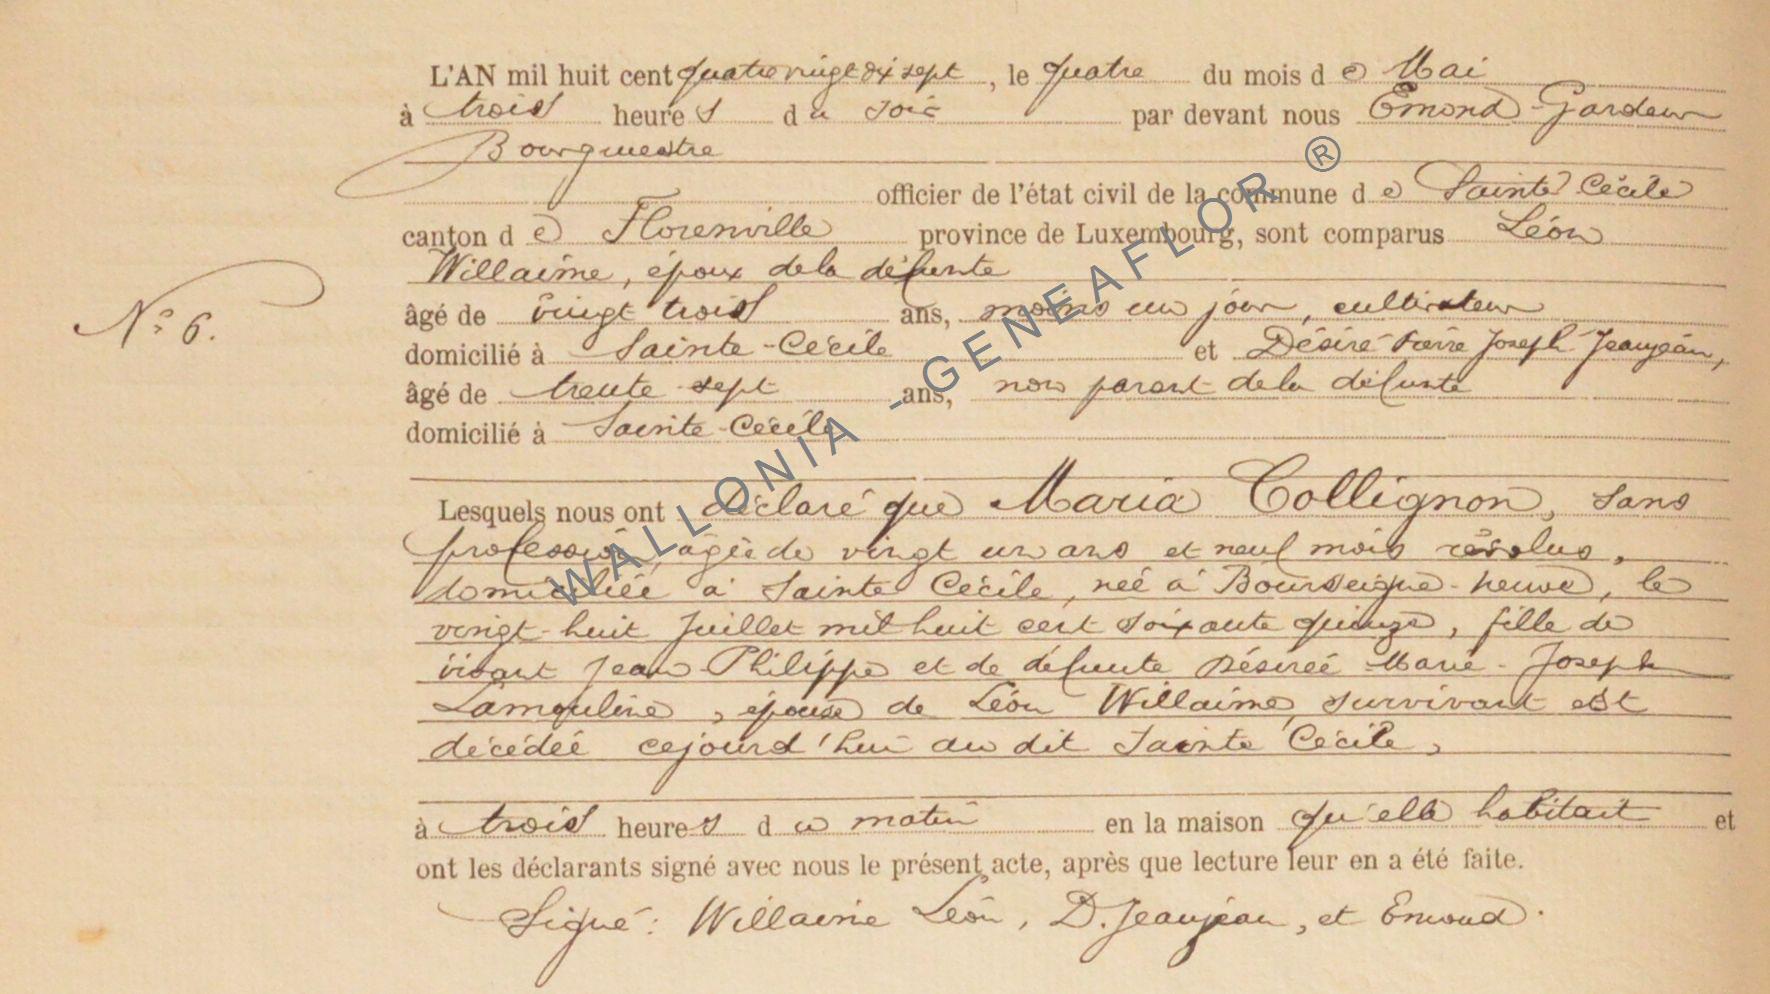 L'AN mil huit cent quatre vingt dix sept, le quatre du mois de Mai
à trois heures du soir par devant nous Emond-Gardeur
Bourgmestre
officier de l'état civil de la commune de Sainte Cécile
canton de Florenville province de Luxembourg, sont comparus Léon
Willaime, époux de la défunte
N° 6.
âgé de vingt trois ans, moins un jour, cultivateur
domicilié à Sainte-Cécile et Désiré Pierre Joseph Jeanjean,
âgé de trente sept ans, non parent de la défunte
domicilié à Sainte-Cécile
Lesquels nous ont déclaré que Maria Collignon, sans
profession, âgée de vingt un ans et neuf mois résolus,
domiciliée à Sainte Cécile, neé à Bourseigne-neuve, le
vingt-huit Juillet mil huit cent soixante quinze, fille de
vivant Jean Philippe et de défunte Désireé Marie-Joseph
Lamouline, épouse de Léon Willaime, survivant est
décédée cejourd'hui au dit Sainte Cécile,
à trois heures du matin en la maison qu'elle habitait et
ont les déclarants signé avec nous le présent acte, après que lecture leur en a été faite.
Signé: Willaime Léon, D. Jeanjean, et Emond.
WALLONIA - GENEAFLOR ®